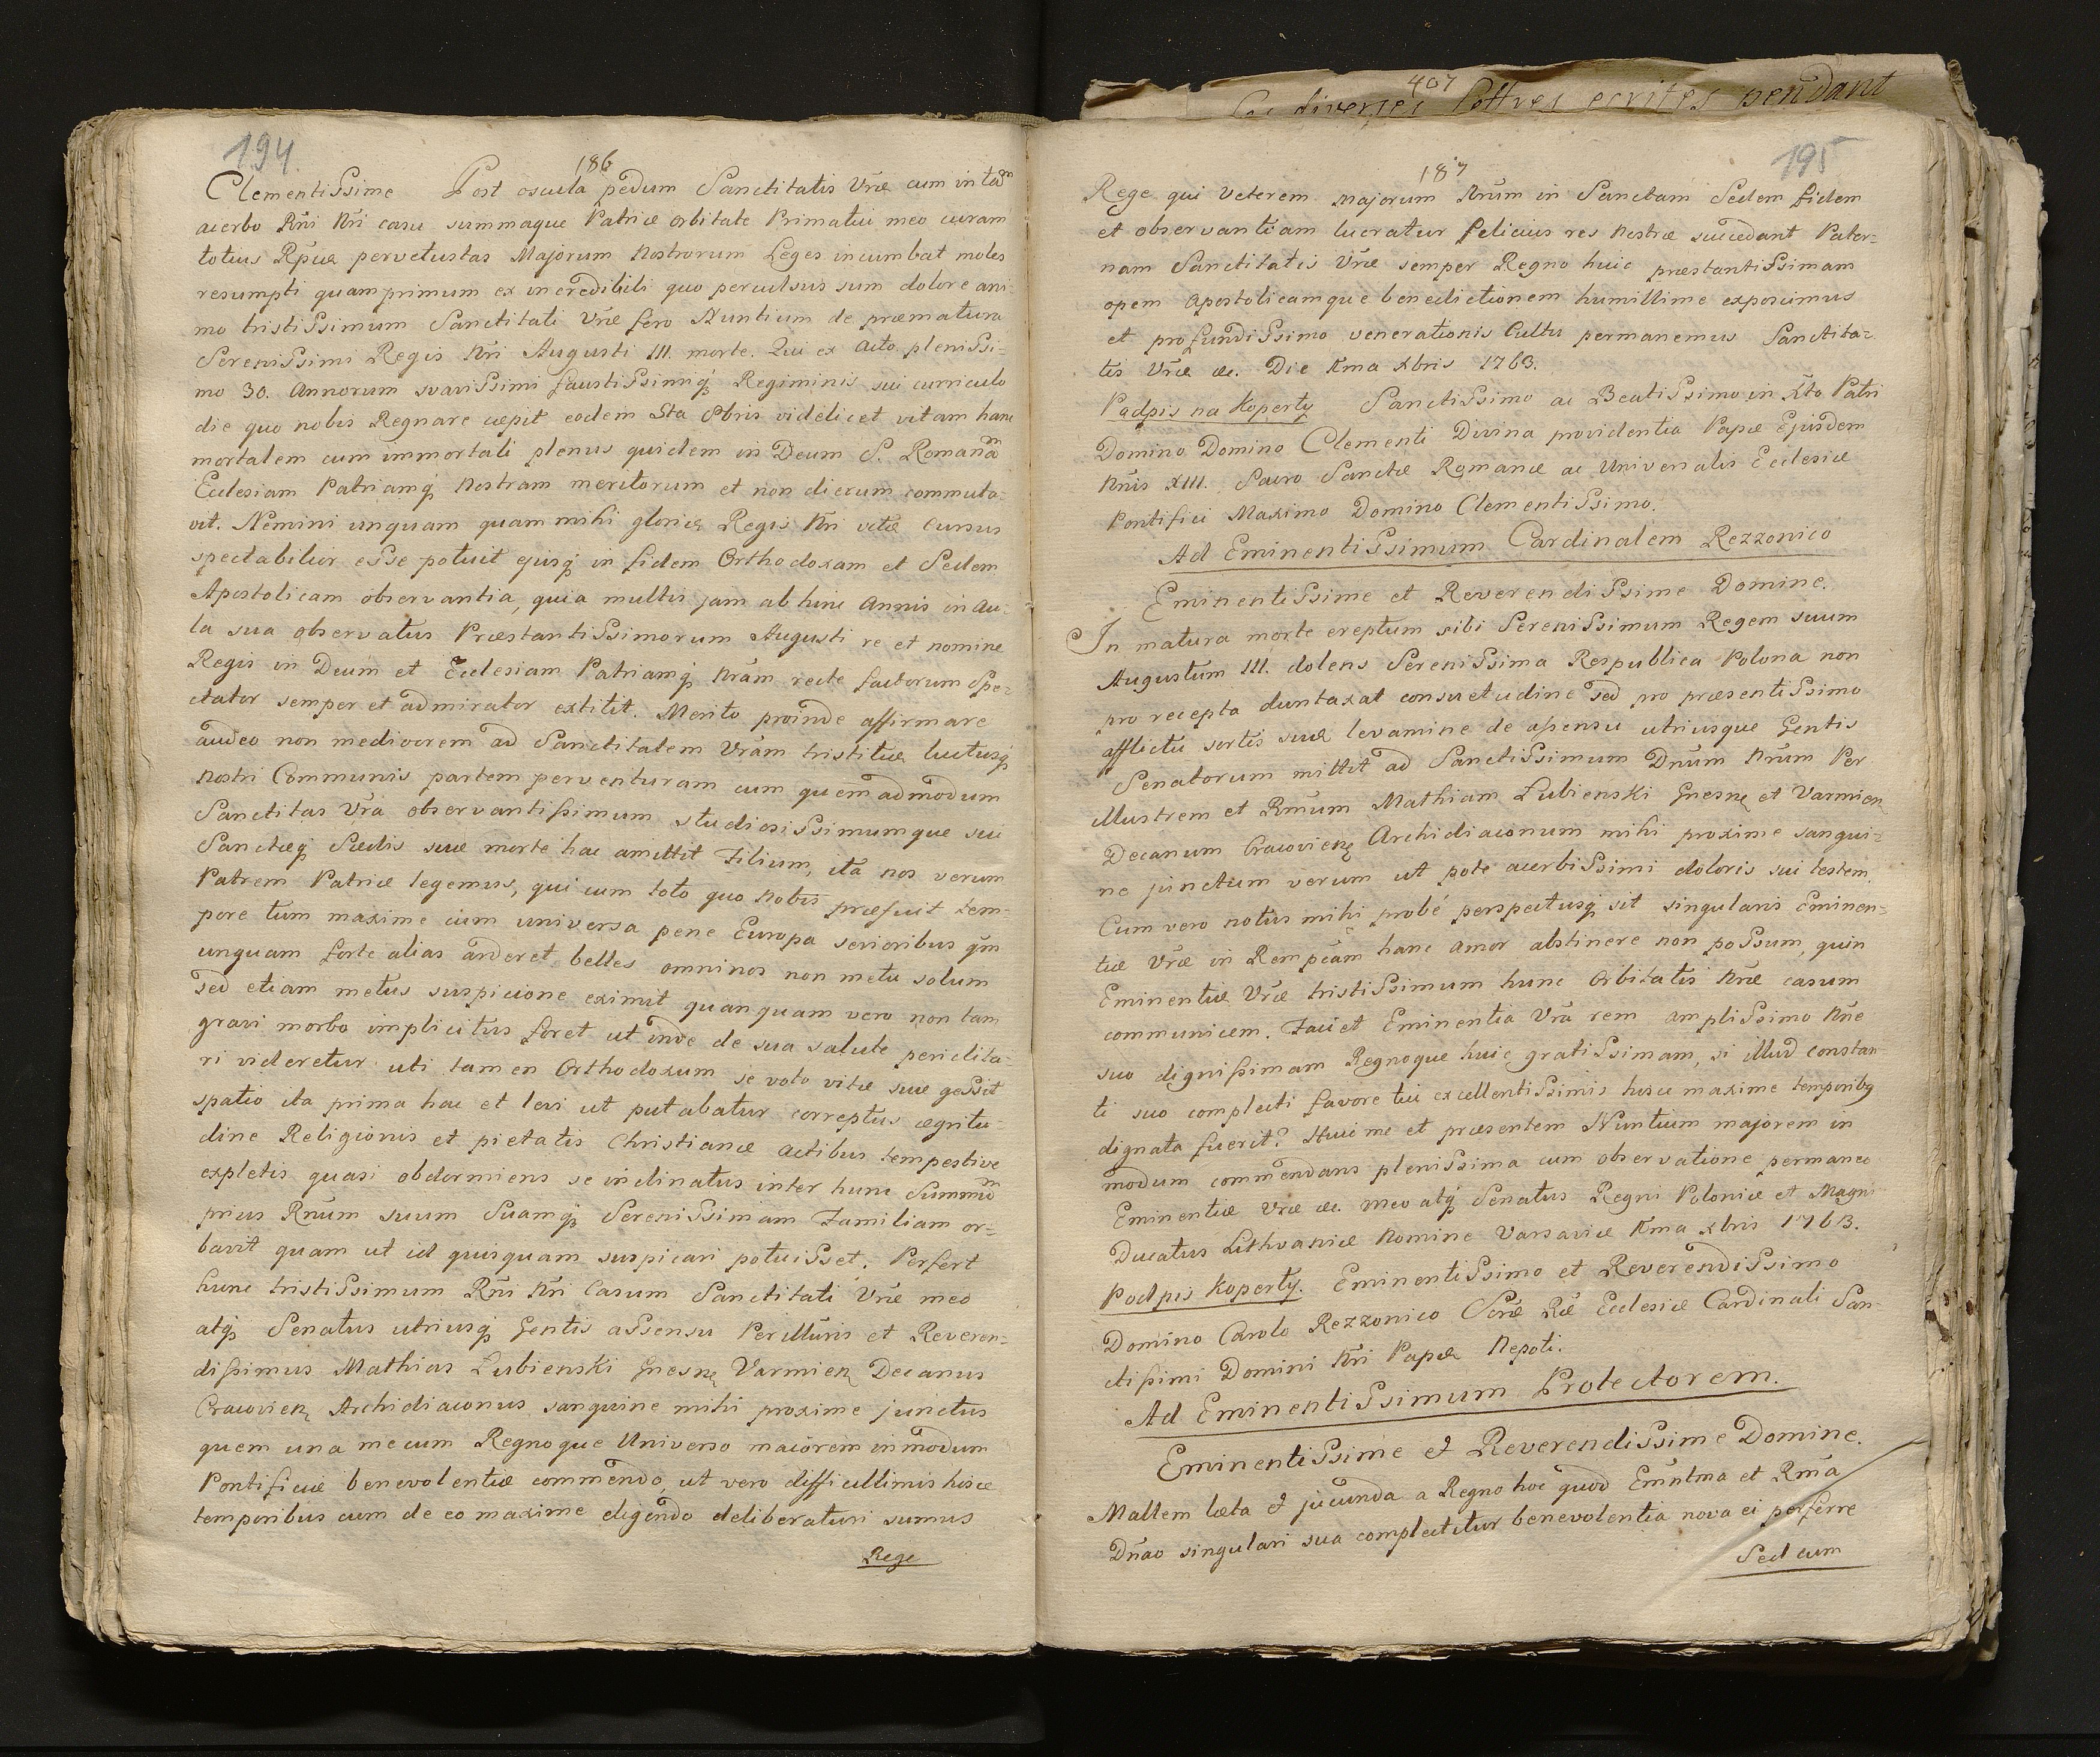 194.
186
Clementissime Post oscula pedum Sanctitatis Vrae cum in tam
acerbo Rñi Nñi casu summaque Patriæ orbitate Primatui meo curam
totius Rpcæ pervetustas Majorum Nostrorum Leges incumbat moles
resumpti quamprimum ex incredibili quo perculsus sum dolore ani-
mo tristissimum Sanctitati Vræ fero Nuntium de præmatura
Serenissimi Regis Nri Augusti III. morte. Qui ex acto plenissi-
mo 30. Annorum svavissimi faustissimiq Regiminis sui curriculo
die quo nobis Regnare cæpit eodem 5ta 8bris videlicet vitam hanc
mortalem cum immortali plenus quidem in Deum S. Romanam
Ecclesiam Patriamq nostram meritorum et non dierum commuta-
vit. Nemini unquam quam mihi gloriæ Regis Nri vitæ cursus
spectabilior esse potuit ejusq in fidem Orthodoxam et Sedem
Apostolicam observantia, quia multis jam ab hinc Annis in Au-
la sua observatus Præstantissimorum Augusti re et nomine
Regis in Deum et Ecclesiam Patriamq Nram recte factorum Spe-
ctator semper et admirator extitit. Merito proinde affirmare
audeo non mediocrem ad Sanctitatem Vram tristitiæ luctusq
nostri Communis partem perventuram cum quemadmodum
Sanctitas Vra observantissimum studiosissimumque sui
Sanctæq Sedis suæ morte hac amittit Filium, ita nos verum
Patrem Patriæ legemus, qui cum toto quo nobis præfuit tem-
pore tum maxime cum universa pene Europa serioribus qm
unquam forte alias arderet belles omninos non metu solum
sed etiam metus suspicione eximit quanquam vero non tam
gravi morbo implicitus foret ut inde de sua salute periclita-
ri videretur uti tamen Orthodoxum se voto vitæ suæ gessit
spatio ita prima hac et levi ut putabatur correptus ægritu-
dine Religionis et pietatis Christianæ actibus tempestive
expletis quasi obdormiens se inclinatus inter hunc Summum
prius Rnum suum Suamq Serenissimam Familiam or-
bavit quam ut id quisquam suspicari potuisset. Perfert
hunc tristissimum Rñi Nri Casum Sanctitati Vræ meo
atq Senatus utriusq Gentis assensu Perillüris et Reveren-
dissimus Mathias Lubienski Gnesn Varmien Decanus
Cracovien Archidiaconus sanguine mihi proxime junctus
quem una mecum Regnoque Universo maiorem in modum
Pontificiæ benevolentiæ commendo, ut vero difficillimis hisce
temporibus cum de eo maxime eligendo deliberaturi sumus
Rege
407
diverses lettres ecrites pendant
195
187
Rege qui Veterem Majorum Nrum in Sanctam Sedem fidem
et observantiam tueratur felicius res Nostræ succedant Pater-
nam Sanctitatis Vræ semper Regno huic præstantissimam
opem Apostolicamque benedictionem humillime exposcimus
et profundissimo venerationis Cultu permanemus Sanctita-
tis Vræ &c. Die 1ma Xbris 1763.
Padpis na Koperty Sanctissimo ac Beatissimo in Xto Patri
Domino Domino Clementi Divina providentia Papæ Ejusdem
Nnis XIII. Sacro Sanctæ Romanæ ac Universalis Ecclesiæ
Pontifici Maximo Domino Clementissimo.
Ad Eminentissimum Cardinalem Rezzonico
Eminentissime et Reverendissime Domine.
In matura morte ereptum sibi Serenissimum Regem suum
Augustum III. dolens Serenissima Respublica Polona non
pro recepta duntaxat consuetudine sed pro præsentissimo
afflictæ sortis suæ levamine de assensu utriusque Gentis
Senatorum mittit ad Sanctissimum Dnum Nrum Per
illustrem et Rmum Mathiam Lubienski Gnesn et Varmien
Decanum Cracovien Archidiaconum mihi proxime sangui-
ne junctum verum ut pote acerbissimi doloris sui testem.
Cum vero notus mihi probé perspectusq sit singularis Eminen-
tiæ Vræ in Rempcam hanc amor abstinere non possum, quin
Eminentiæ Vræ tristissimum hunc Orbitatis Nræ casum
communicem. Faciet Eminentia Vra rem amplissimo Nne
suo dignissimam Regnoque huic gratissimam, si illud constan
ti suo complecti favore tui excellentissimis hisce maxime temporibg
dignata fuerit? Huic me et præsentem Nuntium majorem in
modum commendans plenissima cum observatione permaneo
Eminentiæ Vræ &c. meo atq Senatus Regni Poloniæ et Magni
Ducatus Lithvaniæ Nomine Varsaviæ 1ma xbris 1763.
Podpis Koperty. Eminentissimo et Reverendissimo
Domino Carolo Rezzonico Scræ Ræ Ecclesiæ Cardinali San-
ctissimi Domini Nri Papæ Nepoti.
Ad Eminentissimum Protectorem.
Eminentissime et Reverendissime Domine.
Mallem læta et jucunda a Regno hoc quod Emntma et Rma
Dnao singulari sua complectitur benevolentia nova ei perferre
Sed cum